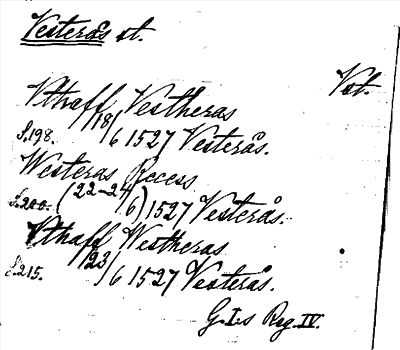 Vesterås st.
Vst.
Vthaff Vestheras
S.198. 18/6 1527 Vesterås.
Westeras Recess
S.200. (22-24/6) 1527 Vesterås.
Vthaff Westheras
S.215. 23/6 1527 Vesterås.
G.I.s Reg. IV.